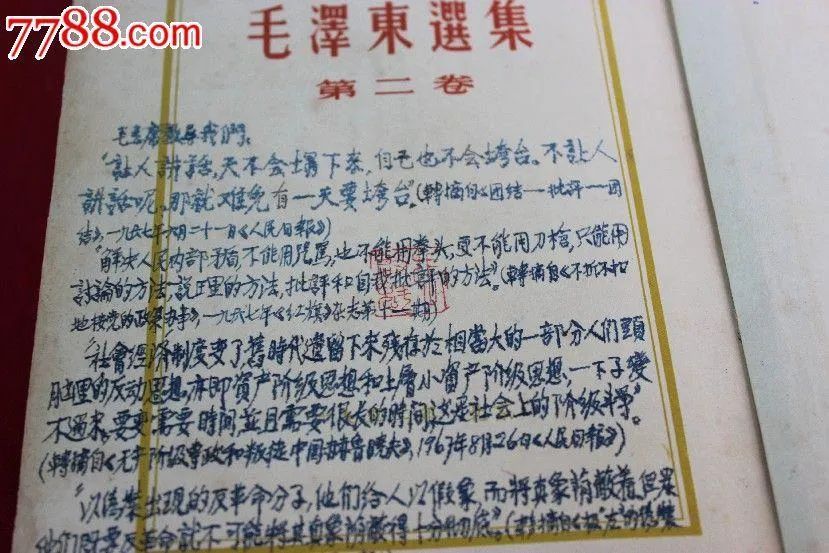 7788.com
毛澤東選集
第二卷
毛主席教导我們:
“让人讲話,天不会塌下来,自己也不会垮台。不让人
讲話呢,那就难免有一天要垮台”。(轉摘自《团结一批评一团
结》,一九六七年 月二十一日《人民日報》)
“解决人民内部矛盾,不能用咒罵,也不能用拳头,更不能用刀槍,只能用
討論的方法,說理的方法,批評和自我批評的方法”。(轉摘自《不折不扣
地按党的政策办事》,一九六七年《红旗》杂志第十一期)
“社會經济制度变了,舊时代遺留下来残存於相當大的一部分人们頭
脑里的反动思想,亦即資产阶级思想和上層小資产阶级思想,一下子變
不過来。要變需要時間,並且需要很长的時間,这是社会上的阶级斗争”
(轉摘自《无产阶级專政和叛徒中国赫鲁曉夫》,1967年8月26日《人民日報》)
“以偽裝出現的反革命分子,他们给人以假象,而將真象蔭蔽着。但是
他们既要反革命,就不可能將其真象蔭蔽得十分彻底”。(轉摘自 的偽裝